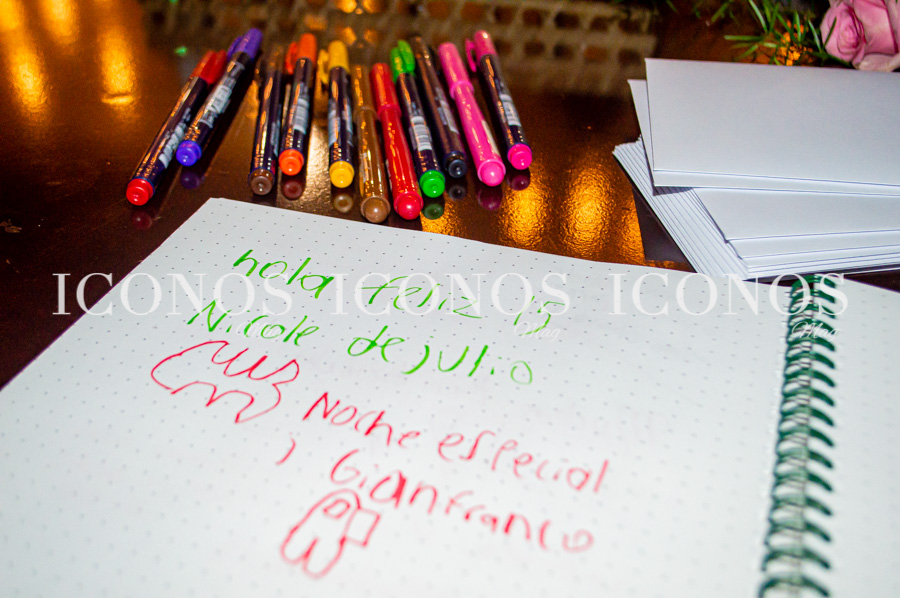 hola feliz 15
Nicole de julio
Noche especial
, Gianfranco
ICONOS ICONOS ICONOS
Mag